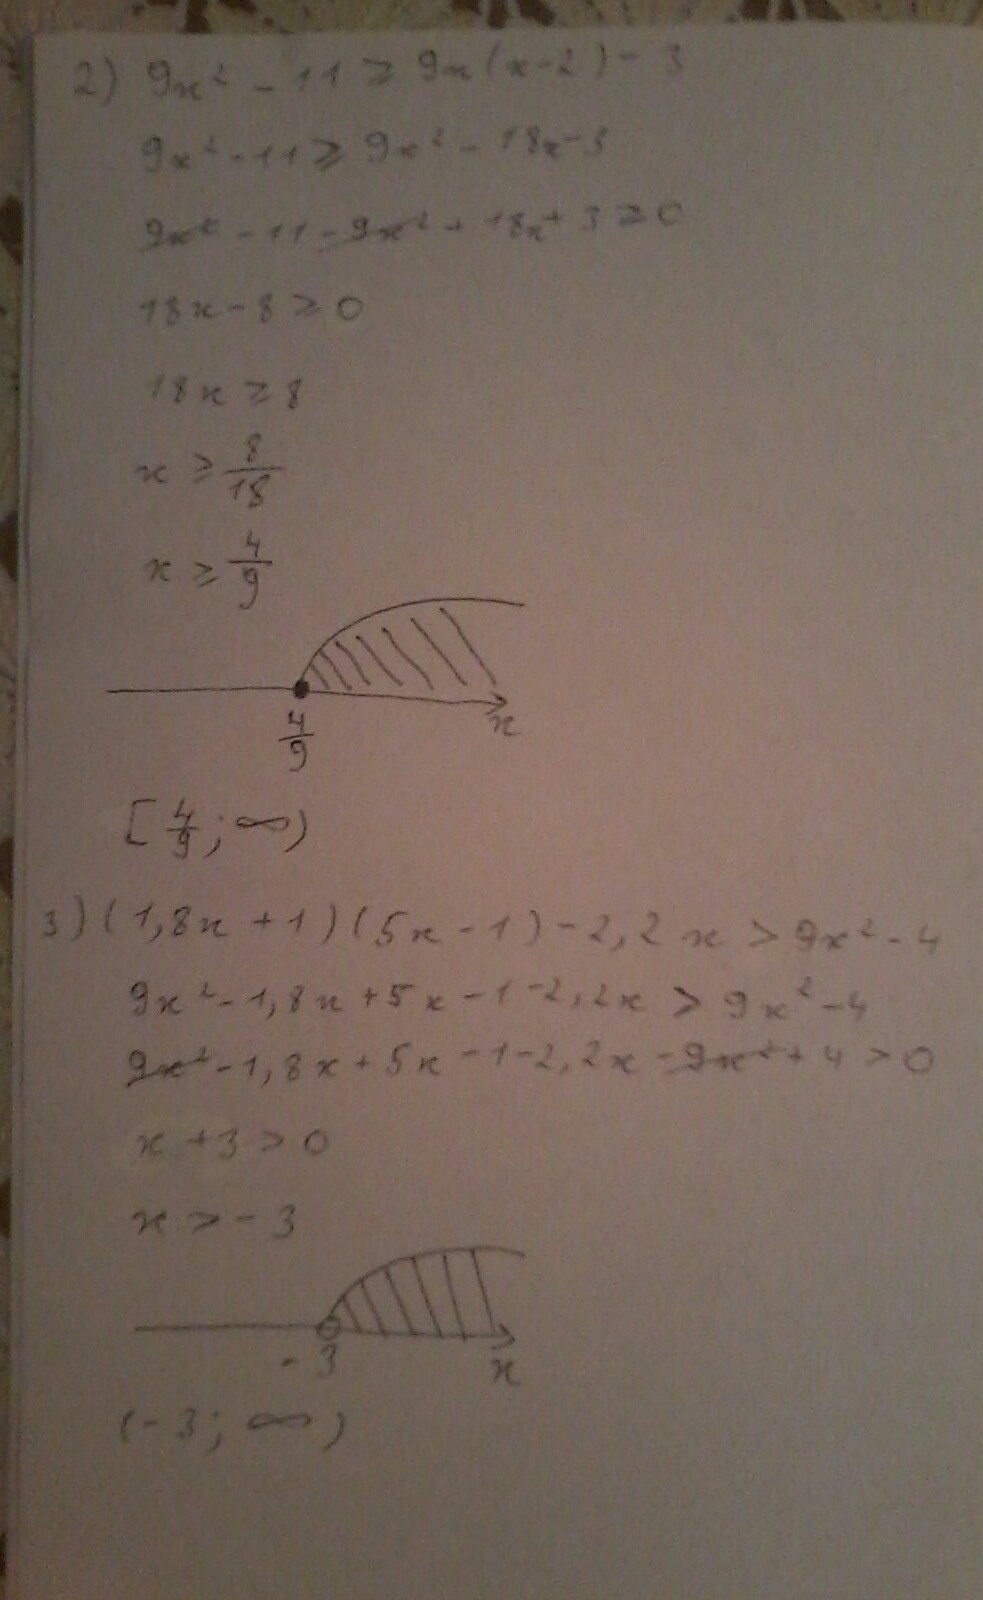 2) 9x² - 11 ≥ 9x(x-2) - 3
9x² - 11 ≥ 9x² - 18x - 3
9x² - 11 - 9x² + 18x + 3 ≥ 0
18x - 8 ≥ 0
18x ≥ 8
x ≥ 8/18
x ≥ 4/9
4/9 x
[4/9; ∞)
3) (1,8x + 1)(5x - 1) - 2,2x > 9x² - 4
9x² - 1,8x + 5x - 1 - 2,2x > 9x² - 4
9x² - 1,8x + 5x - 1 - 2,2x - 9x² + 4 > 0
x + 3 > 0
x > - 3
- 3 x
(- 3; ∞)